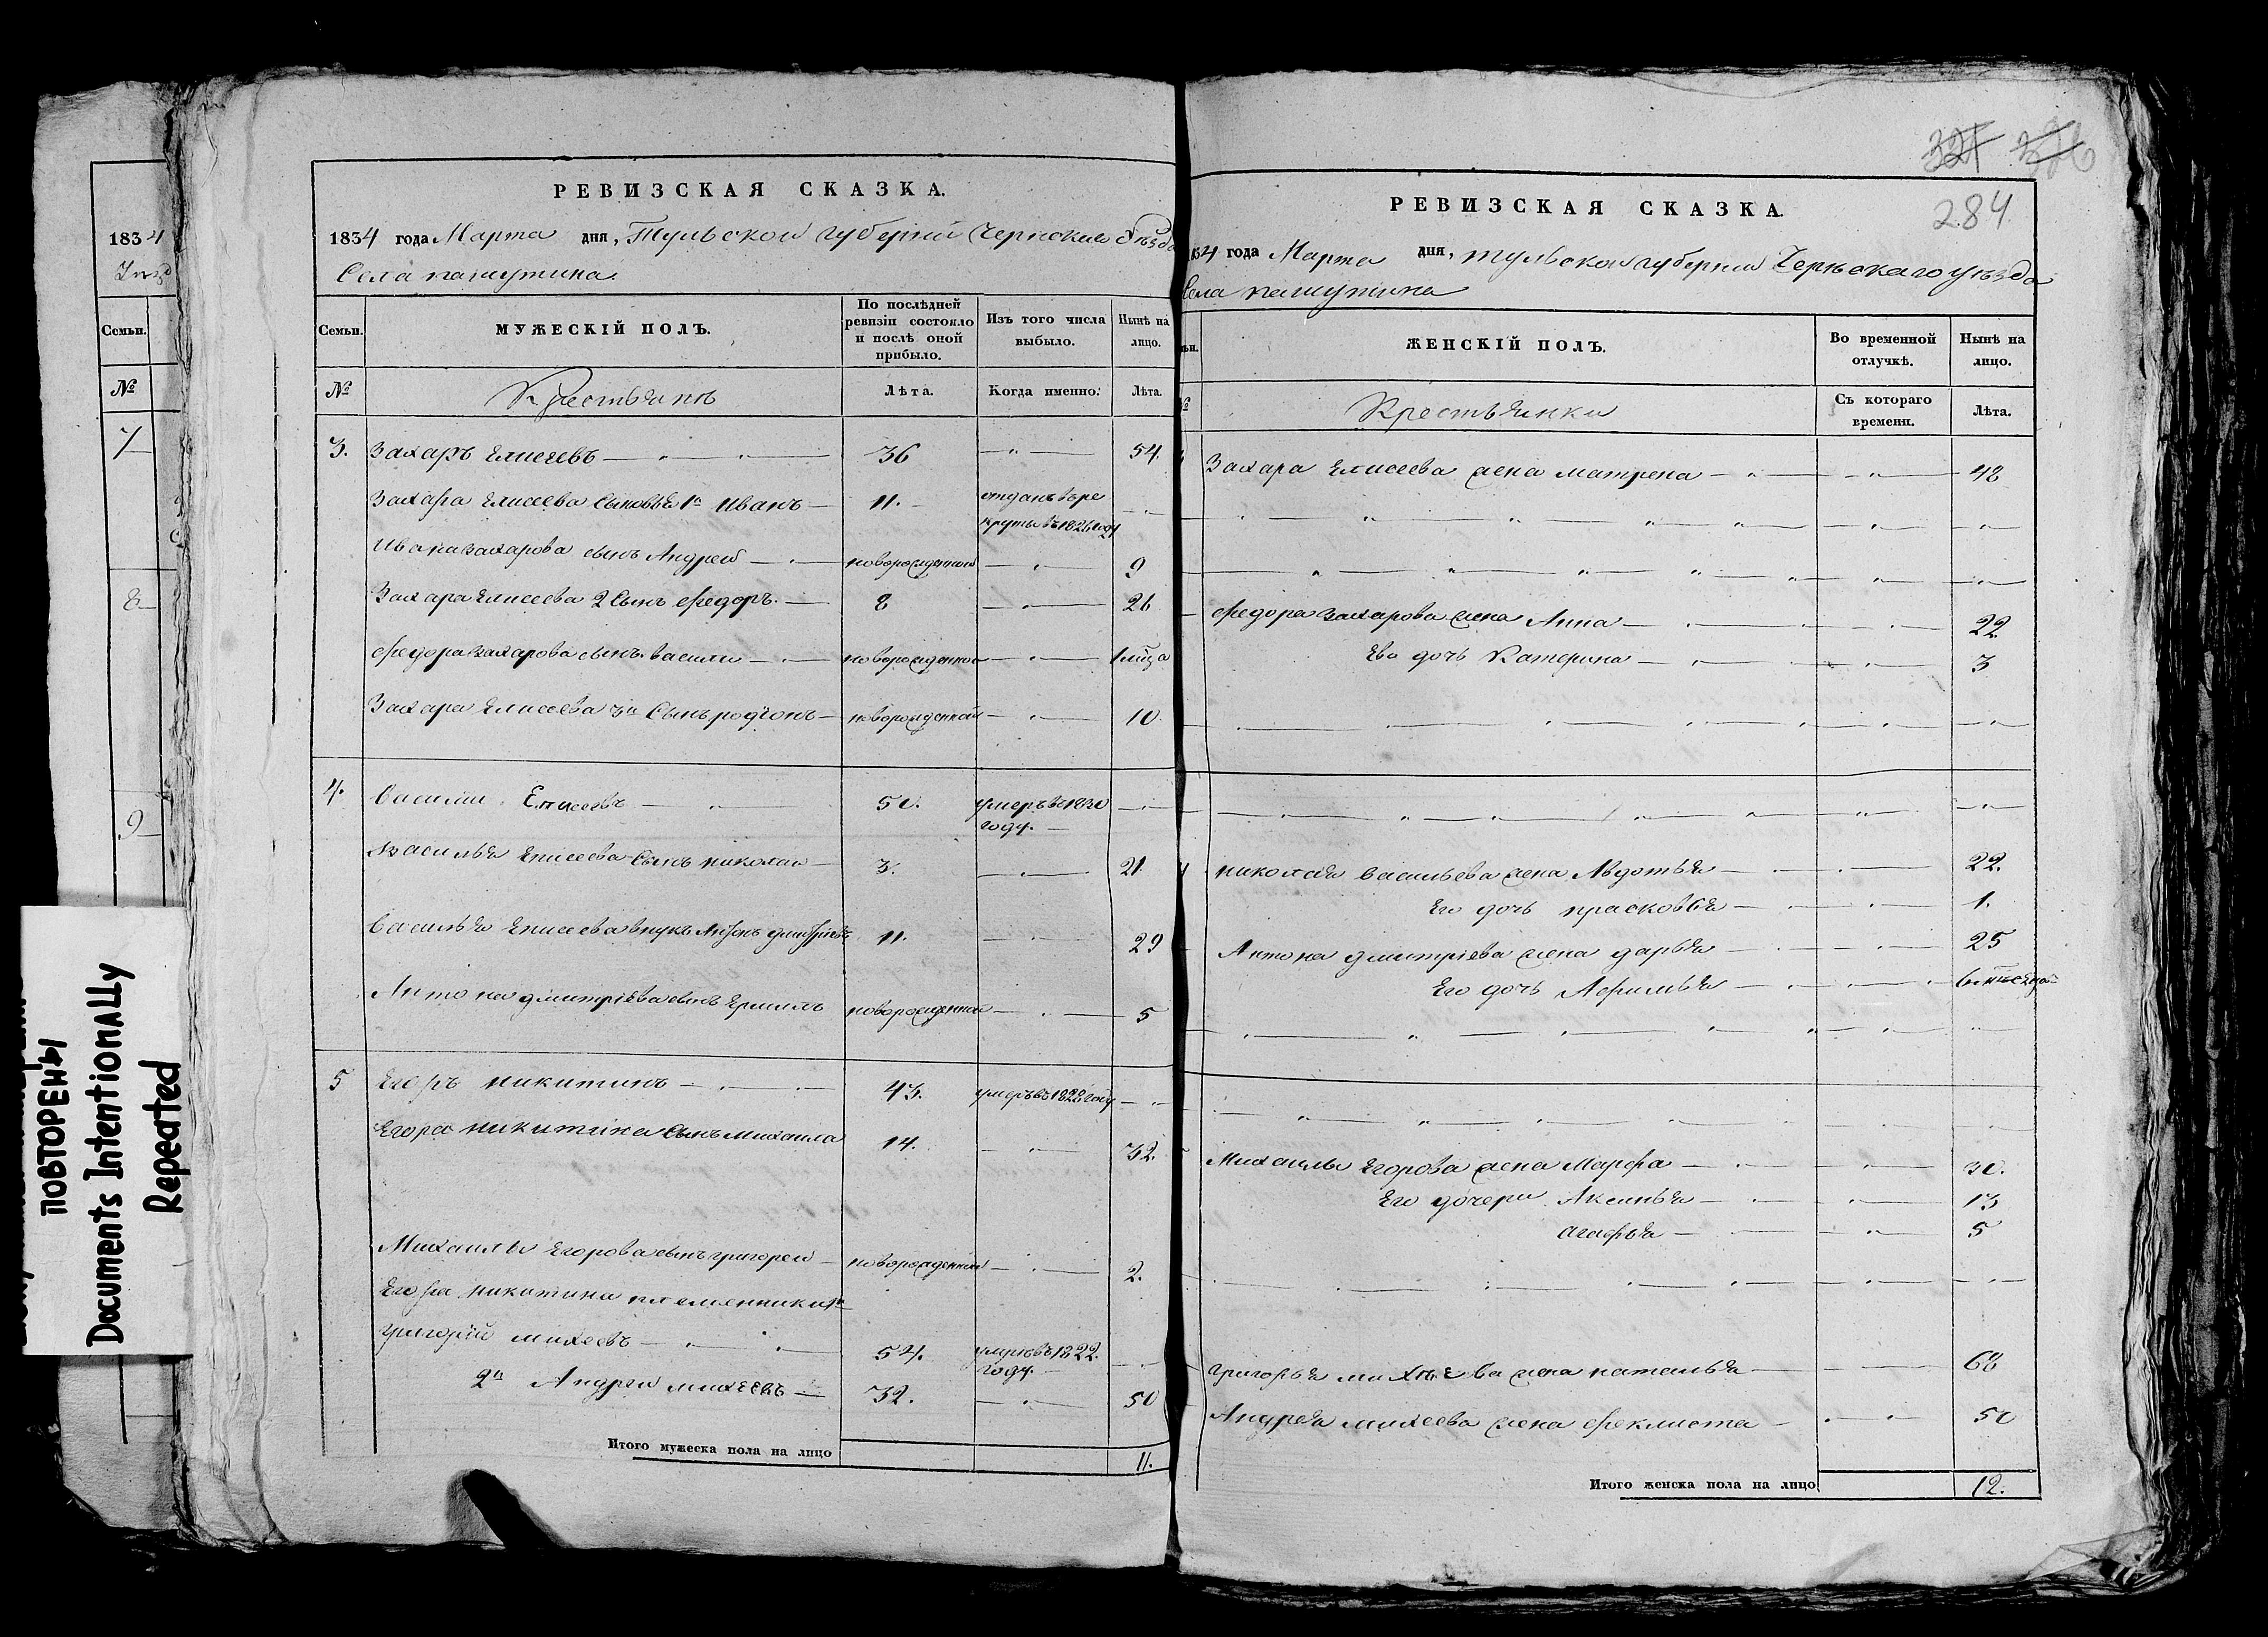 1834
Семьи.
№
7
8
9
ПОВТОРЕНЫ
Documents Intentionally
Repeated
РЕВИЗСКАЯ СКАЗКА.
1834 года Марта дня, Тульской губернии Чернскаго Уѣзда
Села пашутина
Семьи.
МУЖЕСКІЙ ПОЛЪ.
По послѣдней ревизіи состояло и послѣ оной прибыло.
Изъ того числа выбыло.
Нынѣ на лицо.
№
Крестьянъ
Лѣта.
Когда именно:
Лѣта.
3. Захаръ Елисеевъ 36 54.
Захара Елисеева Сыновья 1й Иванъ 11. отданъ въ ре
круты въ 1826 году
Ивана захарова сынъ Андрей новорожденной 9
Захара Елисеева 2 Сынъ Федоръ 8 26
Федора Захарова сынъ василий новорожденной
Захара Елисеева 3й Сынъ родіонъ новорожденной 10
4. Василий Елисеевъ 50. умеръ въ 1830
году.
Василья Елисеева Сынъ николай 3. 21.
Василья Елисеева внукъ Антонъ дмитріевъ 11. 29
Антона дмитріева сынъ Ермилъ новорожденной 5
5 Егоръ никитинъ 43. умеръ въ 1828 году
Егора никитина Сынъ михаила 14. 32.
Михаилы Егорова сынъ григорей новорожденной 2.
Егора никитина племянники 1й
григорій михеевъ 54. умре въ 1822.
году.
2й Андрей михеевъ 32. 50
Итого мужеска пола на лицо 11.
321 326
284
РЕВИЗСКАЯ СКАЗКА.
1834 года Марта дня, тульской губернии Чернскаго уѣзда
Села пашутина
ЖЕНСКІЙ ПОЛЪ.
Во временной отлучкѣ.
Нынѣ на лицо.
№
Крестьянки
Съ котораго времени.
Лѣта.
Захара Елисеева жена матрена 48
Федора захарова жена Анна 22.
Ево дочь Катерина 3
николая васильева жена Авдотья 22.
Его дочь прасковья 1.
Антона дмитріева жена дарья 25
Его дочь Афимья
Михаилы Егорова жена Марфа 30.
Его дочери Аксинья 13
агафья 5
григорья михѣева жена наталья 68
Андрея михеева жена феклиста 50
Итого женска пола на лицо 12.